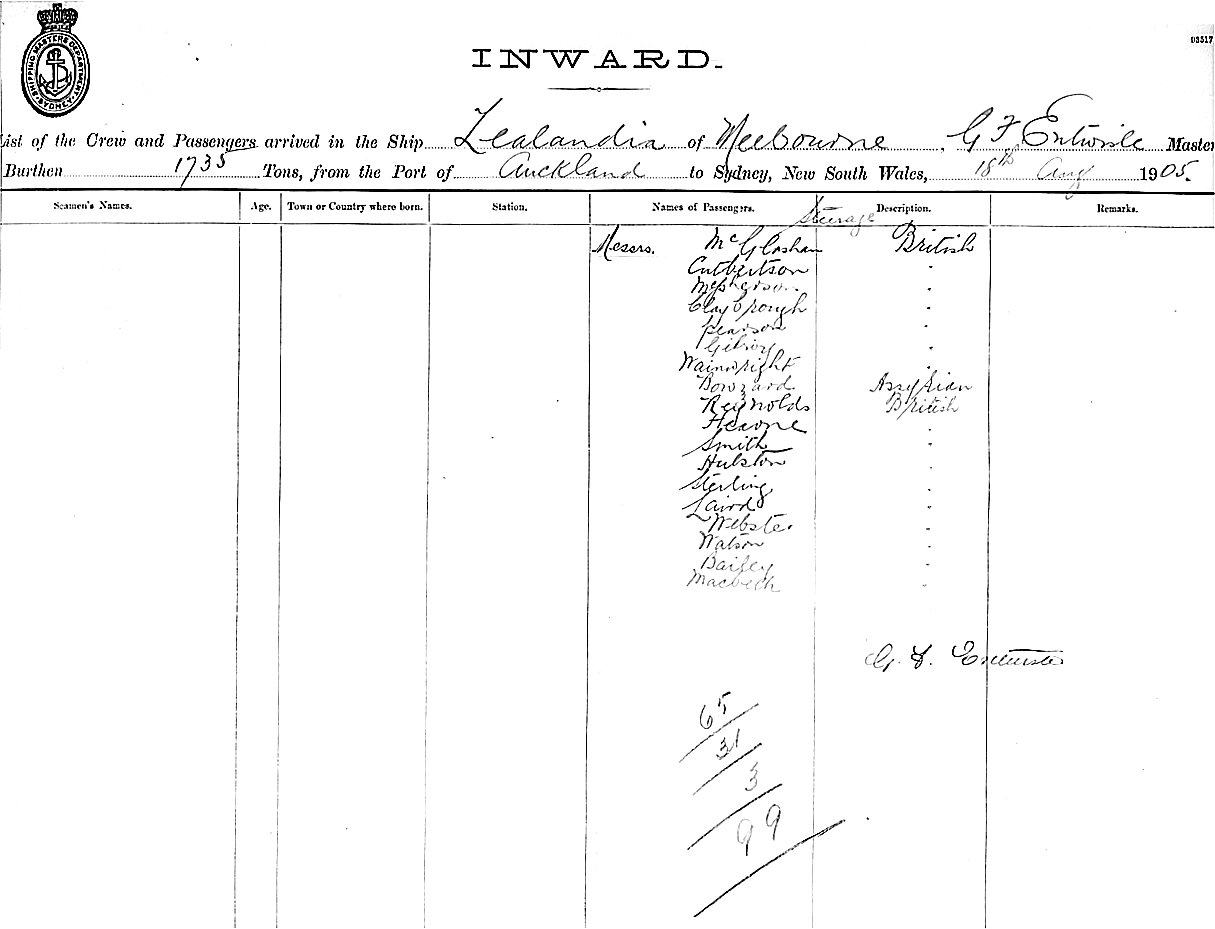 SHIPPING MASTERS DEPARTMENT SYDNEY
03517
INWARD.
List of the Crew and Passengers arrived in the Ship Zealandia of Melbourne, G F Entwisle Master
Burthen 1735 Tons, from the Port of Auckland to Sydney, New South Wales, 18th Aug 1905.
Seamen's Names. Age. Town or Country where born. Station. Names of Passengers. Steerage Description. Remarks.
Messrs. McGlashan British
Cutbertson "
McPherson "
Claybrough "
Pearson "
Gilroy "
Wainwright "
Bowzard Assyrian
Reynolds British
Hearne "
Smith "
Hulston "
Sterling "
Laird "
Webster "
Watson "
Bailey "
Macbeth "
G. F. Entwisle
65
31
3
99